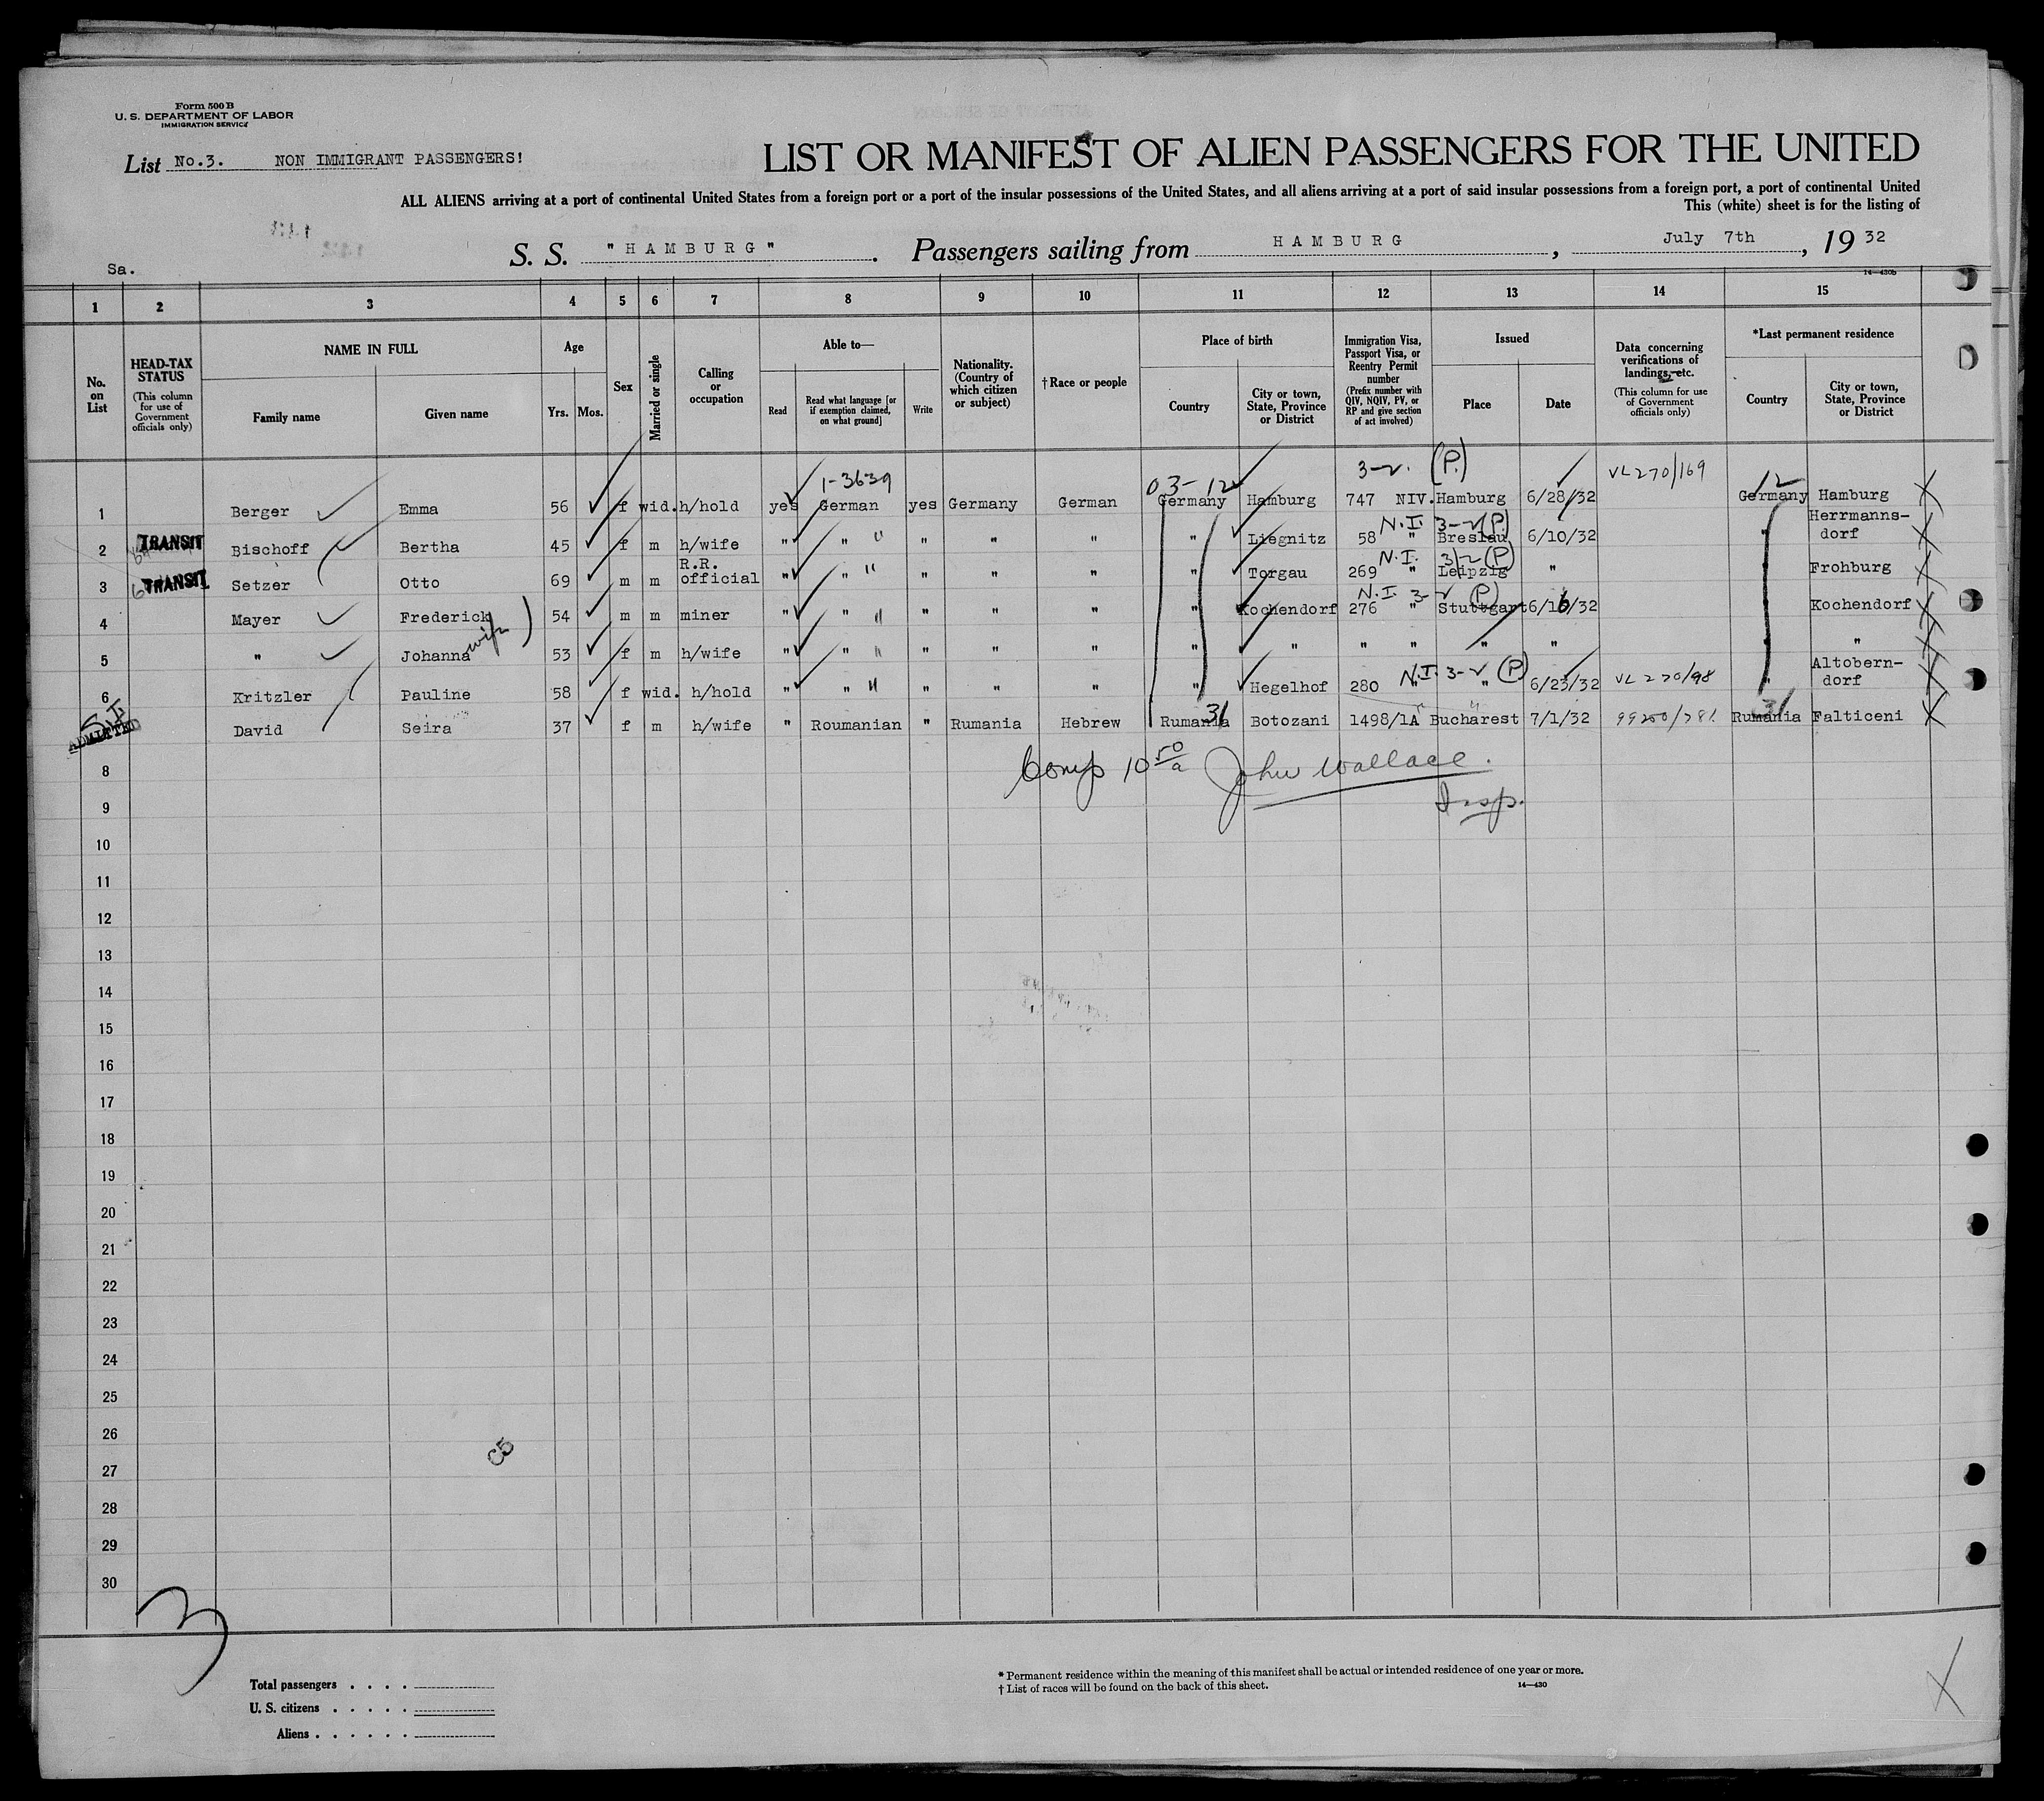 Form 500 B
U. S. DEPARTMENT OF LABOR
IMMIGRATION SERVICE
List No.3. NON IMMIGRANT PASSENGERS!
LIST OR MANIFEST OF ALIEN PASSENGERS FOR THE UNITED
ALL ALIENS arriving at a port of continental United States from a foreign port or a port of the insular possessions of the United States, and all aliens arriving at a port of said insular possessions from a foreign port, a port of continental United
This (white) sheet is for the listing of
S. S. "HAMBURG". Passengers sailing from HAMBURG, July 7th, 19 32
Sa.
14—430b
1 2 3 4 5 6 7 8 9 10 11 12 13 14 15
No. on List
HEAD-TAX STATUS (This column for use of Government officials only)
NAME IN FULL
Family name
Given name
Age
Yrs. Mos.
Sex
Married or single
Calling or occupation
Able to—
Read
Read what language [or if exemption claimed, on what ground]
Write
Nationality. (Country of which citizen or subject)
†Race or people
Place of birth
Country
City or town, State, Province or District
Immigration Visa, Passport Visa, or Reentry Permit number (Prefix number with QIV, NQIV, PV, or RP and give section of act involved)
Issued
Place
Date
Data concerning verifications of landings, etc. (This column for use of Government officials only)
*Last permanent residence
Country
City or town, State, Province or District
1-3639 03-12 3-2. (P.) VL270/169 12
1 Berger Emma 56 f wid. h/hold yes German yes Germany German Germany Hamburg 747 NIV. Hamburg 6/28/32 Germany Hamburg
N.I. 3-2 (P.)
2 TRANSIT Bischoff Bertha 45 f m h/wife " " " " " " Liegnitz 58 " Breslau 6/10/32 " Herrmanns-dorf
N.I. 3-2 (P)
3 TRANSIT Setzer Otto 69 m m R.R. official " " " " " " Torgau 269 " Leipzig " " Frohburg
N.I. 3-2 (P)
4 Mayer Frederick 54 m m miner " " " " " " Kochendorf 276 " Stuttgart 6/16/32 " Kochendorf
wife
5 " Johanna 53 f m h/wife " " " " " " " " " " " " "
N.I. 3-2 (P)
6 Kritzler Pauline 58 f wid. h/hold " " " " " " Hegelhof 280 " " 6/23/32 VL 270/98 " Altobern-dorf
SI
ADMITTED
31 31
David Seira 37 f m h/wife " Roumanian " Rumania Hebrew Rumania Botozani 1498/1A Bucharest 7/1/32 Rumania Falticeni
Comp 10 50/a John Wallace.
Insp.
8
9
10
11
12
13
14
15
16
17
18
19
20
21
22
23
24
25
26
27
28
29
30
3
Total passengers . . . .
U. S. citizens . . . . .
Aliens . . . . . .
* Permanent residence within the meaning of this manifest shall be actual or intended residence of one year or more.
† List of races will be found on the back of this sheet.
14—430